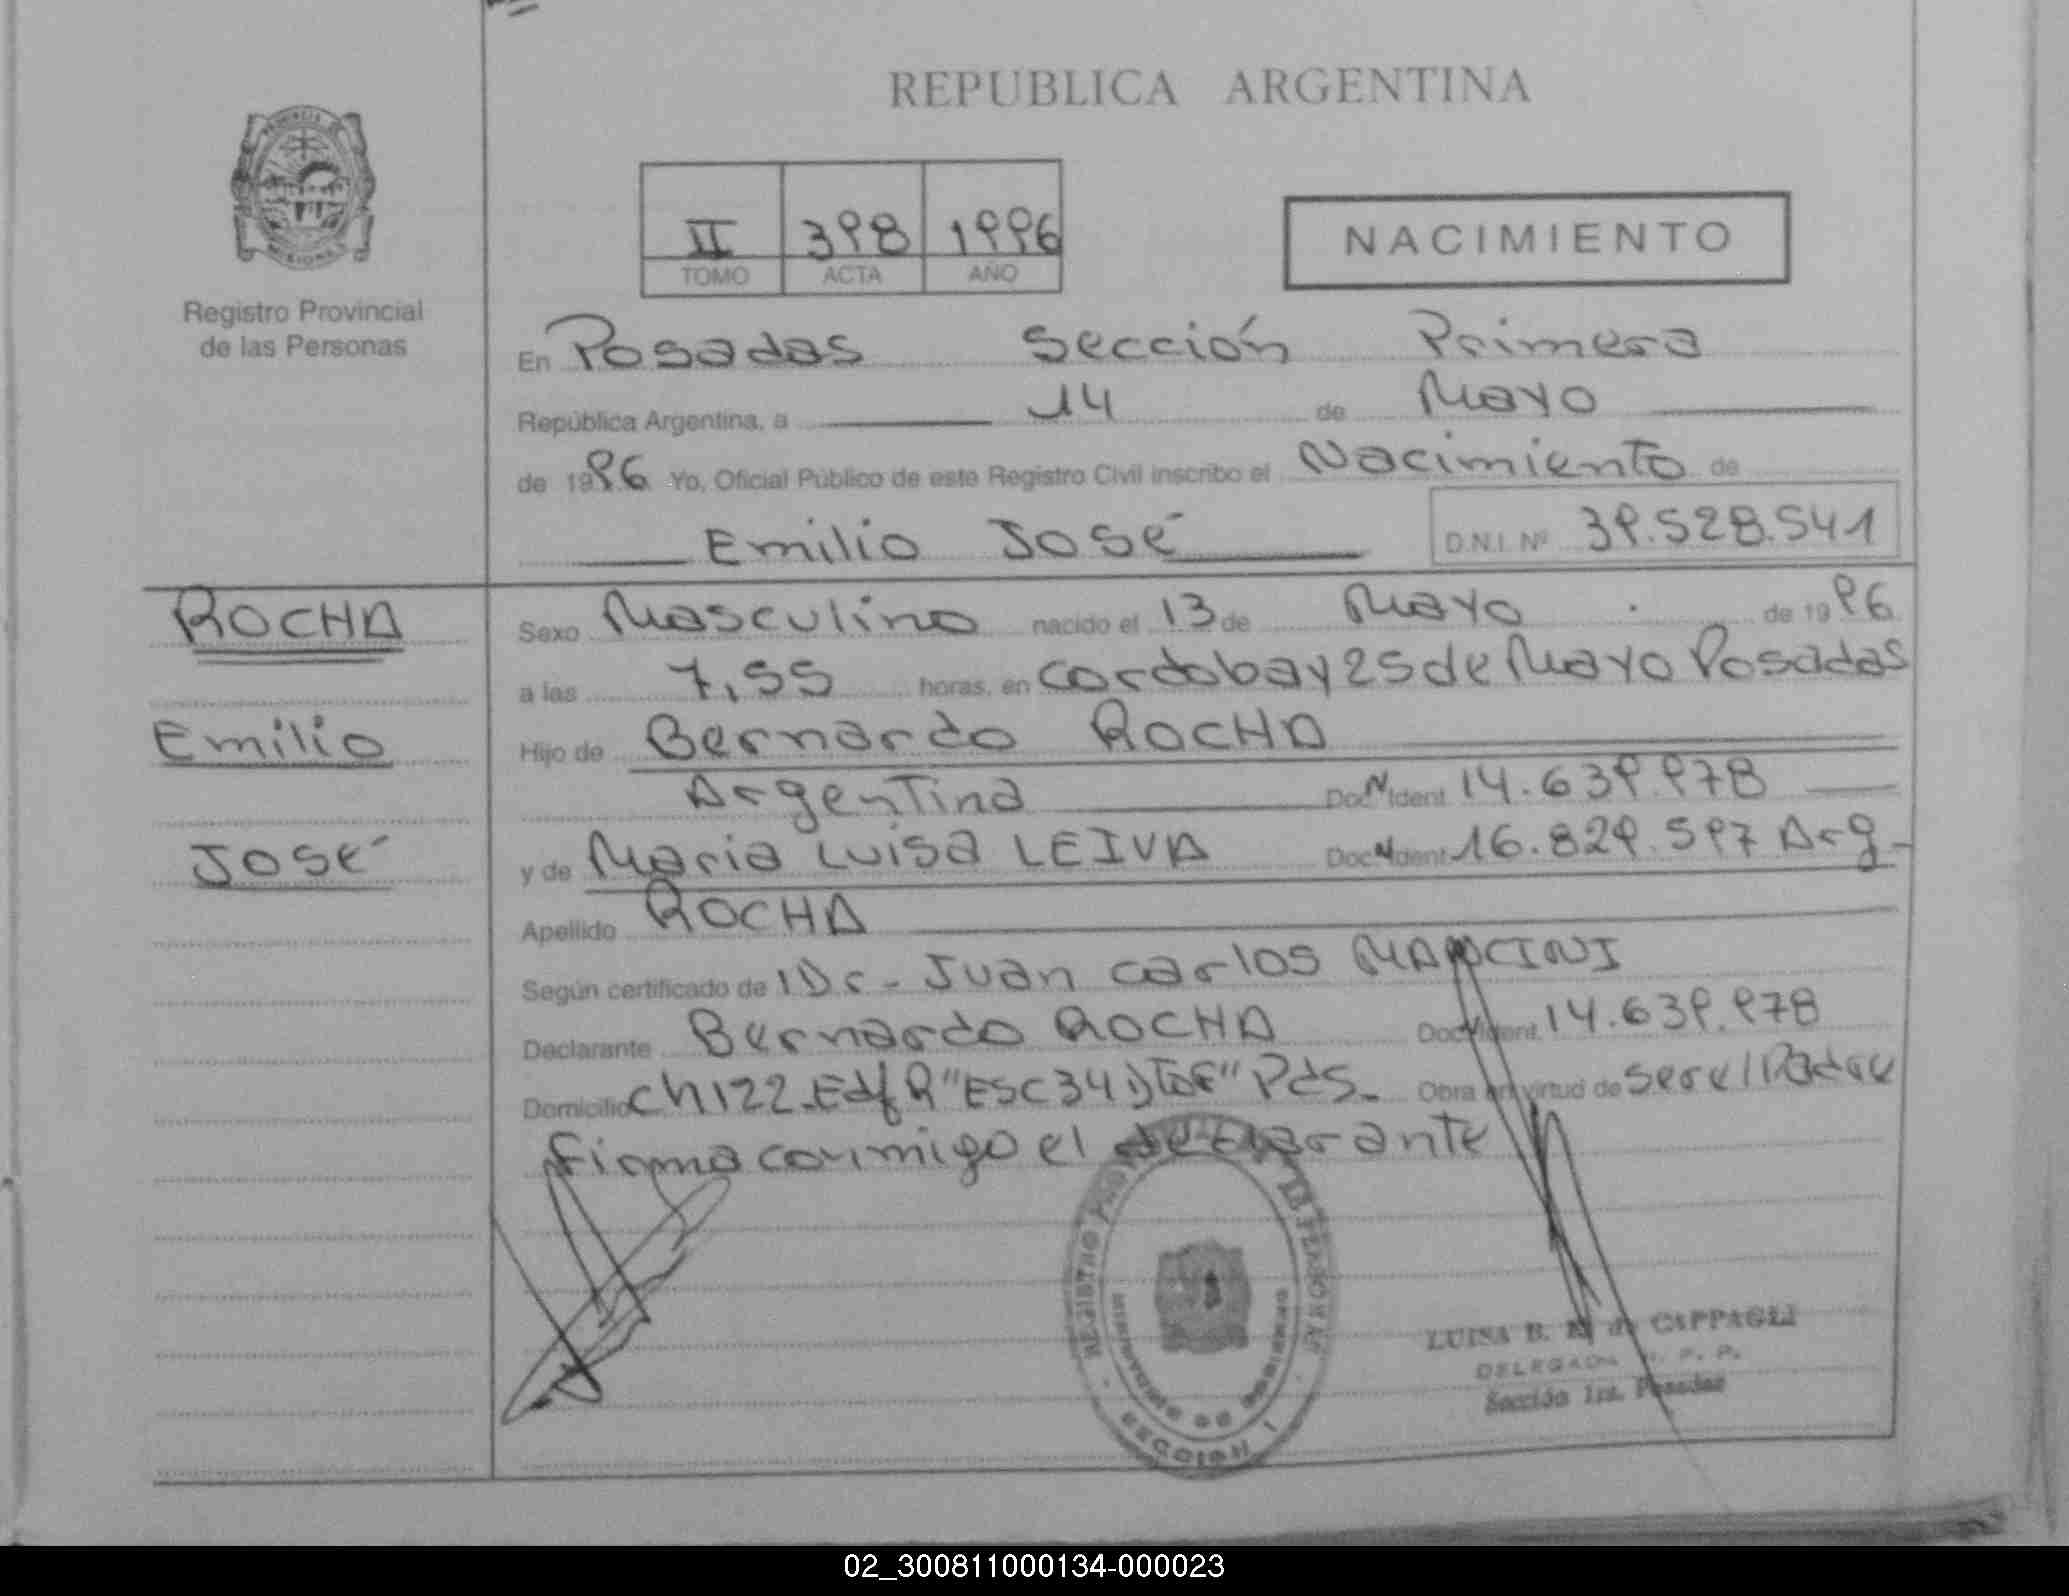 REPUBLICA ARGENTINA
PROVINCIA DE MISIONES
Registro Provincial
de las Personas
II 398 1996
TOMO ACTA AÑO
NACIMIENTO
En Posadas Sección Primera
República Argentina, a 14 de Mayo
de 1996 Yo, Oficial Público de este Registro Civil inscribo el Nacimiento de
Emilio José D.N.I. Nº 39.528.541
ROCHA
Emilio
José
Sexo Masculino nacido el 13 de Mayo de 1996
a las 7,55 horas, en Cordoba y 25 de Mayo Posadas
Hijo de Bernardo ROCHA
Argentina Doc. Ident. 14.639.978
y de Maria Luisa LEIVA Doc. Ident. 16.829.597 Arg-
Apellido ROCHA
Según certificado de Dr- Juan Carlos MANCINI
Declarante Bernardo ROCHA Doc. Ident. 14.639.978
Domicilio Ch122-Edf R"ESC34 Pds- Obra en virtud de ser el Padre
Firma conmigo el declarante
REGISTRO DE LAS PERSONAS
MINISTERIO DE GOBIERNO
SECCION I
LUISA B. de CAPPAGLI
DELEGADA R. P. P.
Sección 1ra. Posadas
02_300811000134-000023